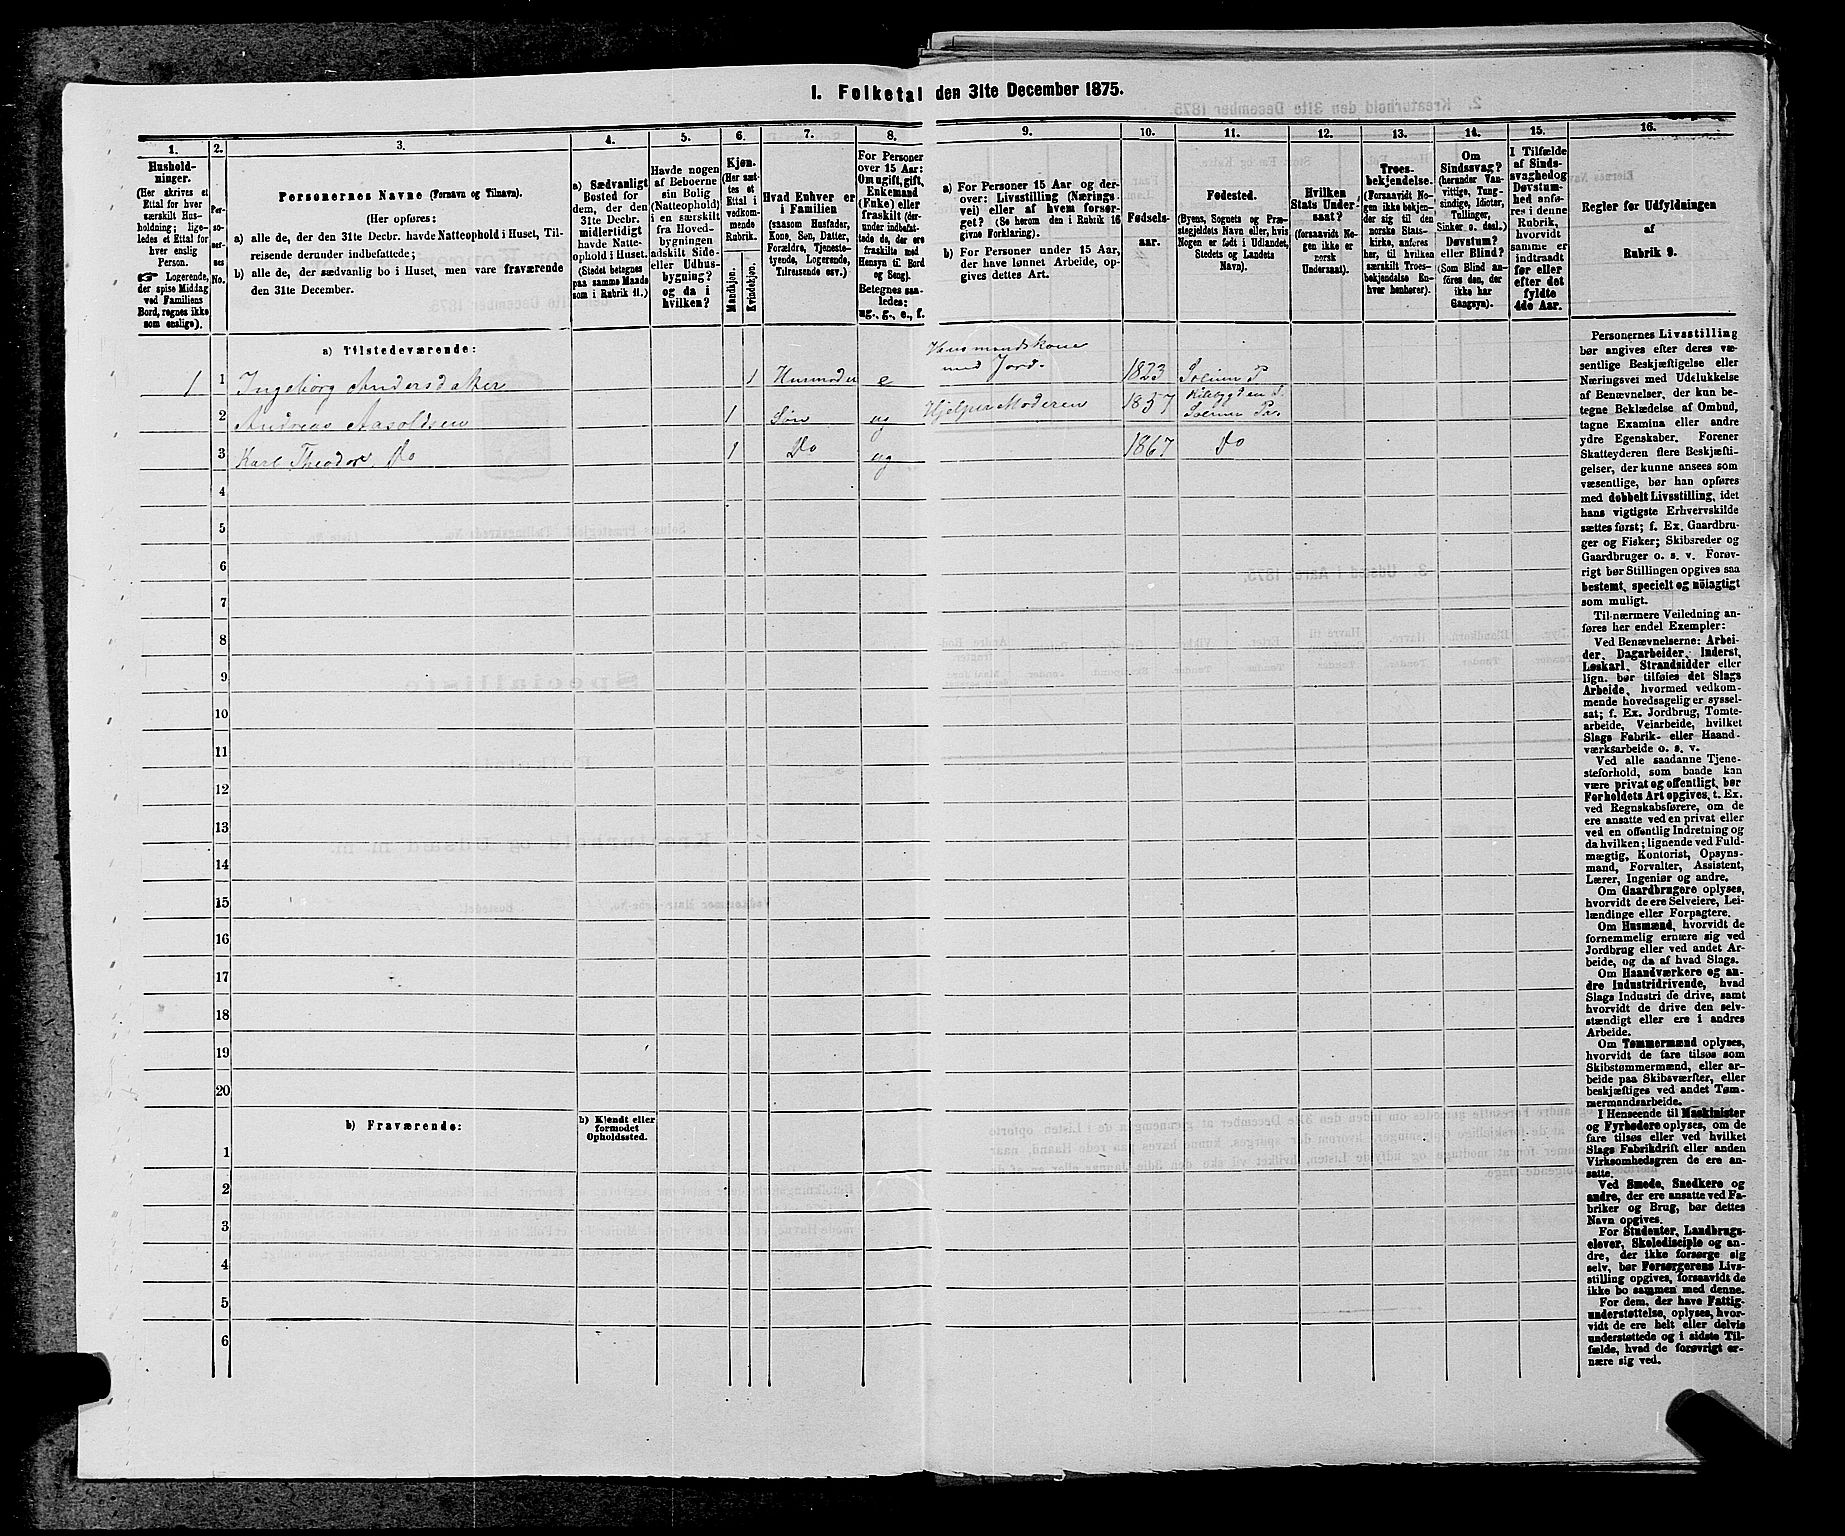 1. Folketal den 31te December 1875.
1. 2. 3. 4. 5. 6. 7. 8. 9. 10. 11. 12. 13. 14. 15. 16.
Hushold-
ninger.
(Her skrives et
Ettal for hver
særskilt Hus-
holdning; lige-
ledes et Ettal for
hver enslig
Person.
☞ Logerende,
der spise Middag
ved Familiens
Bord, regnes ikke
som enslige).
Per-
so-
ner-
nes
No.
Personernes Navne (Fornavn og Tilnavn).
(Her opføres:
a) alle de, der den 31te Decbr. havde Natteophold i Huset, Til-
reisende derunder indbefattede;
b) alle de, der sædvanlig bo i Huset, men vare fraværende
den 31te December.
a) Sædvanligt
Bosted for
dem, der den
31te Decbr.
midlertidigt
havde Natte-
ophold i Huset.
(Stedet betegnes
paa samme Maade
som i Rubrik 11.)
Havde nogen
af Beboerne
sin Bolig
(Natteophold)
i en særskilt
fra Hoved-
bygningen
adskilt Side-
eller Udhus-
bygning?
og da i
hvilken?
Kjøn.
(Her sæt-
tes et
Ettal i
vedkom-
mende
Rubrik.
Mandkjøn.
Kvindekjøn.
Hvad Enhver er
i Familien
(saasom Husfader,
Kone, Søn, Datter,
Forældre, Tjeneste-
tyende, Logerende,
Tilreisende osv.)
For Personer
over 15 Aar:
Om ugift, gift,
Enkemand
(Enke) eller
fraskilt (der-
under indbefat-
tede de, der ere
fraskilte med
Hensyn til Bord
og Seng).
Betegnes saa-
ledes:
ug., g., e., f.
a) For Personer 15 Aar og der-
over: Livsstilling (Nærings-
vei) eller af hvem forsør-
get? (Se herom den i Rubrik 16
givne Forklaring).
b) For Personer under 15 Aar,
der have lønnet Arbeide, op-
gives dettes Art.
Fødsels-
aar.
Fødested.
(Byens, Sognets og Præ-
stegjeldets Navn eller, hvis
Nogen er født i Udlandet,
Stedets og Landets
Navn).
Hvilken
Stats Under-
saat?
(forsaavidt No-
gen ikke er
norsk
Undersaat).
Troes-
bekjendelse.
(Forsaavidt No-
gen ikke bekjen-
der sig til den
norske Stats-
kirke, anføres
her, til hvilken
særskilt Troes-
bekjendelse En-
hver henhører).
Om
Sindssvag?
(herunder Van-
vittige, Tung-
sindige, Idioter,
Tullinger,
Sinker o. desl.)
Døvstum?
eller Blind?
(Som Blind an-
føres den, der
ikke har
Gangsyn).
I Tilfælde
af Sinds-
svaghed og
Døvstum-
hed anfø-
res i denne
Rubrik,
hvorvidt
samme er
indtraadt
før eller
efter det
fyldte
4de Aar.
Regler for Udfyldningen
af
Rubrik 9.
a) Tilstedeværende:
1 1 Ingeborg Andersdatter 1 Husmoder e Husmandskone
med Jord. 1823 Solum P
2 Andreas Aasoldsen 1 Søn ug Hjelper Moderen 1857
Solum Pr.
3 Karl Theodor Do 1 Do ug 1867 Do
4
5
6
7
8
9
10
11
12
13
14
15
16
17
18
19
20
b) Fraværende:
b) Kjendt eller
formodet
Opholdssted.
1
2
3
4
5
6
Personernes Livsstilling
bør angives efter deres væ-
sentlige Beskjæftigelse eller
Næringsvei med Udelukkelse
af Benævnelser, der kun be-
tegne Beklædelse af Ombud,
tagne Examina eller andre
ydre Egenskaber. Forener
Skatteyderen flere Beskjæfti-
gelser, der kunne ansees som
væsentlige, bør han opføres
med dobbelt Livsstilling, idet
hans vigtigste Erhvervskilde
sættes først; f. Ex. Gaardbru-
ger og Fisker; Skibsreder og
Gaardbruger o. s. v. Forøv-
rigt bør Stillingen opgives saa
bestemt, specielt og nöiagtigt
som muligt.
Til nærmere Veiledning an-
føres her endel Exempler:
Ved Benævnelserne: Arbei-
der, Dagarbeider, Inderst,
Løskarl, Strandsidder eller
lign. bør tilføies det Slags
Arbeide, hvormed vedkom-
mende hovedsagelig er syssel-
sat; f. Ex. Jordbrug, Tomte-
arbeide, Veiarbeide, hvilket
Slags Fabrik- eller Haand-
værksarbeide o. s. v.
Ved alle saadanne Tjene-
steforhold, som baade kan
være privat og offentligt, bør
Forholdets Art opgives, t. Ex.
ved Regnskabsførere, om de
ere ansatte ved en privat eller
ved en offentlig Indretning og
da hvilken; lignende ved Fuld-
mægtig, Kontorist, Opsyns-
mand, Forvalter, Assistent,
Lærer, Ingeniør og andre.
Om Gaardbrugere oplyses,
hvorvidt de ere Selveiere, Lei-
lændinge eller Forpagtere.
Om Husmænd, hvorvidt de
fornemmelig ernære sig ved
Jordbrug eller ved andet Ar-
beide, og da af hvad Slags.
Om Haandværkere og an-
dre Industridrivende, hvad
Slags Industri de drive, samt
hvorvidt de drive den selv-
stændigt eller ere i andres
Arbeide.
Om Tømmermænd oplyses,
hvorvidt de fare tilsøs som
Skibstømmermænd, eller ar-
beide paa Skibsværfter, eller
beskjæftiges ved andet Tøm-
mermandsarbeide.
I Henseende til Maskinister
og Fyrbødere oplyses, om de
fare tilsøs eller ved hvilket
Slags Fabrikdrift eller anden
Virksomhedsgren de ere an-
satte.
Ved Smede, Snedkere og
andre, der ere ansatte ved Fa-
briker og Brug, bør dettes
Navn opgives.
For Studenter, Landbrugs-
elever, Skoledisciple og an-
dre, der ikke forsørge sig
selv, bør Forsørgerens Livs-
stilling opgives, forsaavidt de
ikke bo sammen med denne.
For dem, der have Fattig-
understøttelse, oplyses, hvor-
vidt de ere helt eller delvis
understøttede og i sidste Til-
fælde, hvad de forøvrigt er-
nære sig ved.